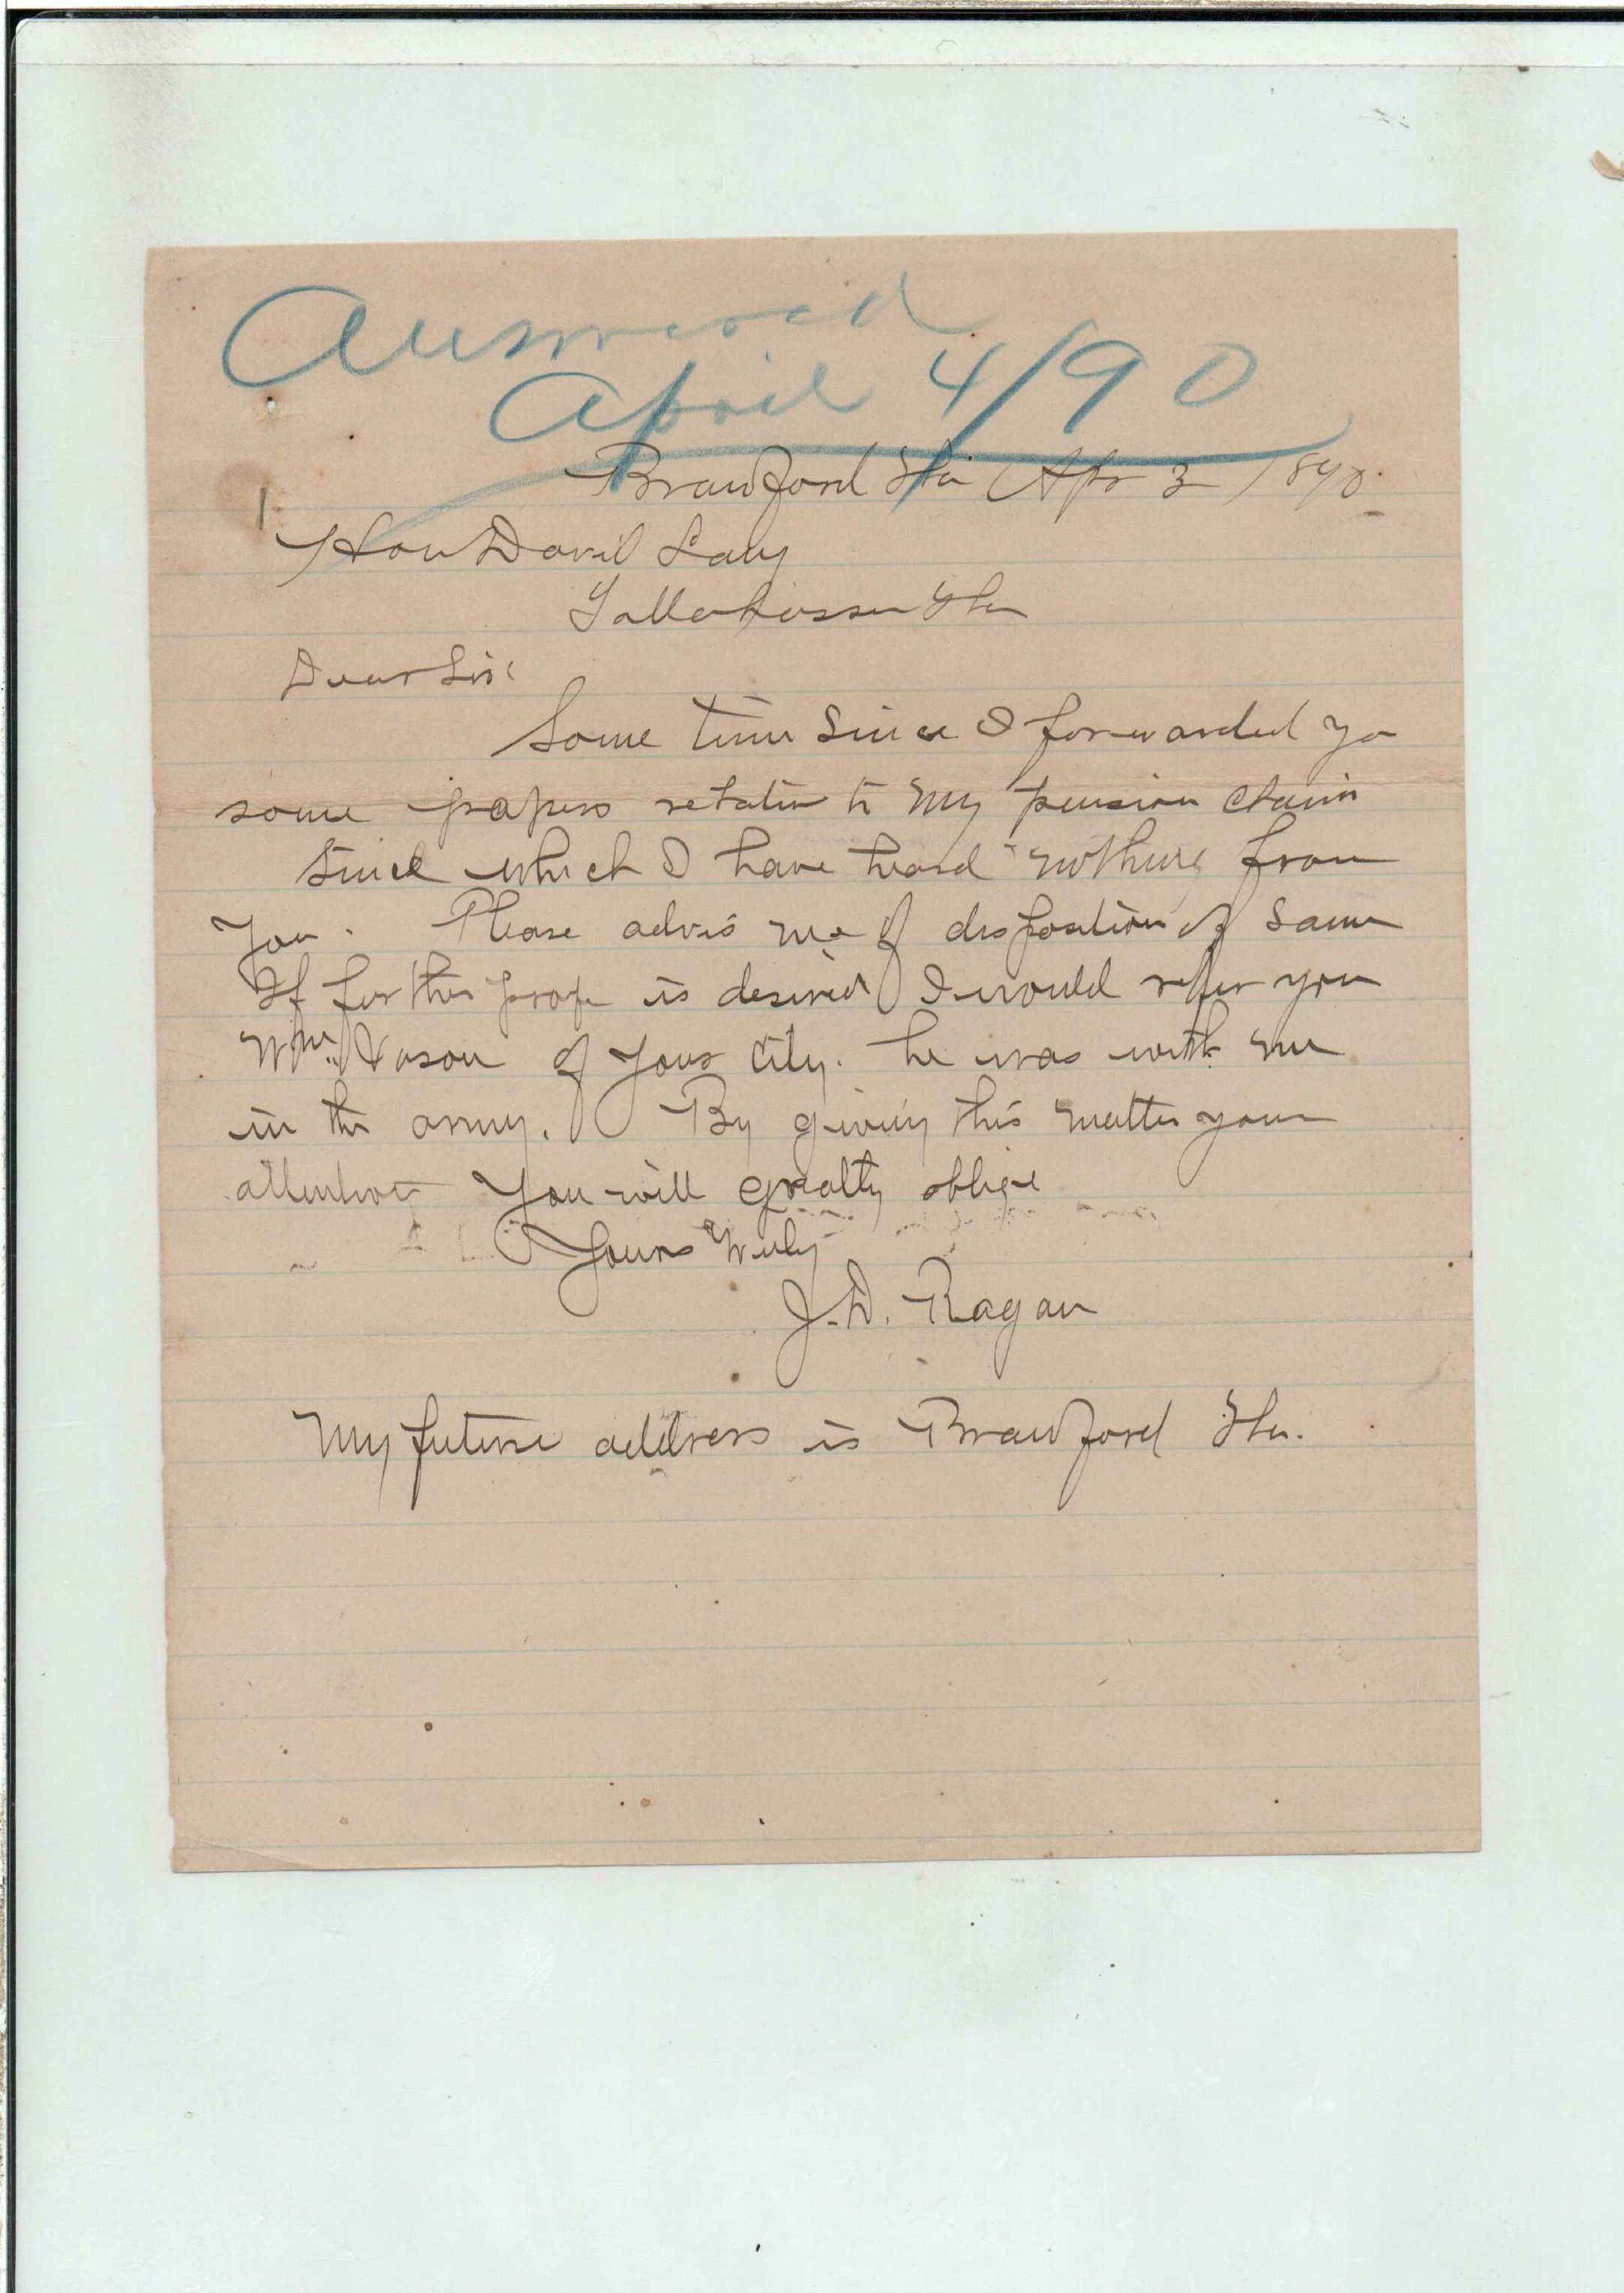 Answered
April 4/90
Branford Fla Apr 3 1890
Hon David Lang
Tallahassee Fla
Dear Sir:
Some time since I forwarded yo
some papers relative to my pension claim
since which I have heard nothing from
you. Please advis me of disposition of same
If further proof is desired I would refer you
Wm. of your city. he was with me
in the army. By giving this matter your
attention you will greatly oblige
Yours truly
J. D. Ragan
My future address is Branford Fla.